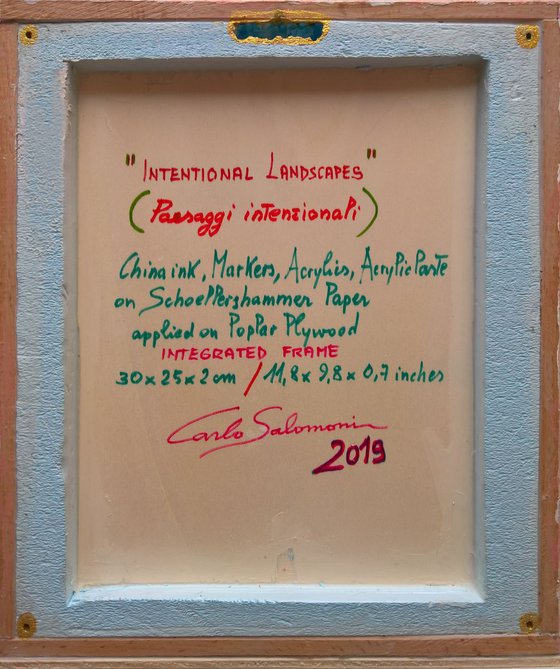 "INTENTIONAL LANDSCAPES"
(Paesaggi intenzionali)
China ink, Markers, Acrylics, Acrylic Paste
on Schoellershammer Paper
applied on Poplar Plywood
INTEGRATED FRAME
30x25x2 cm / 11,8x9,8x0,7 inches
Carlo Salomoni
2019